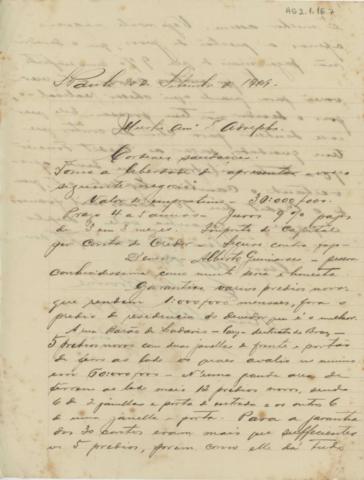 AG 2.1.16.7
S. Paulo 20 de Setembro de 1905.
Illustre Am.º Adolpho.
Cordeaes saudações.
Tomo a liberdade de apresentar a voce o
seguinte negocio
Valor do emprestimo 30:000$000.
Prazo 4 a 5 annos - Juros 9% pagos
de 3 em 3 mezes. Imposto de Capital
por conta do Credor - Seguro contra fogo
Devedor Alberto Guimarães - pessoa
conhecidissima como muito seria e honesta
Garantias varios predios novos
que rendem 1:000$000 mensaes, fora o
predio de residencia do Devedor que é o melhor.
A rua Barão de Ladario - do Braz -
5 predios novos com duas janellas de frente e portão
de ferro ao lado os quaes avalio no minimo
em 60:000$000 - N'uma grande area de
terreno ao lado mais 12 predios novos, sendo
6 de 2 janellas e porta de entrada e os outros 6
de uma janella e porta. Para a garantia
dos 30 contos eram mais que sufficientes
os 5 predios, porem como elle dá tudo